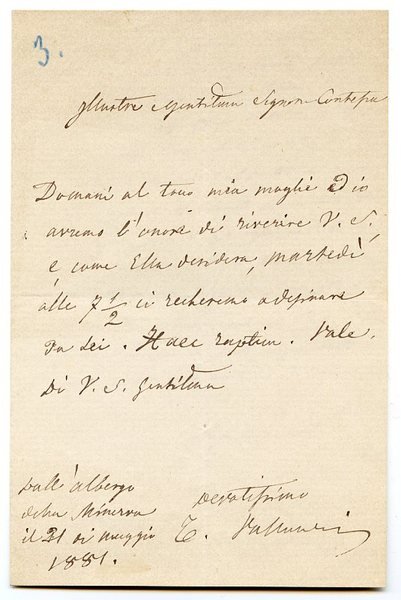 3.
Illustre e Gentilma Signora Contessa
Domani al tocco mia moglie ed io
avremo l'onore di riverire V. S.
e, come Ella desidera, martedì
alle 7 1/2 ci recheremo a desinare
da Lei. Haec raptim. Vale.
Di V. S. Gentilma
Dall'albergo
della Minerva
il 21 di maggio
1881.
devotissimo
T. Vallauri